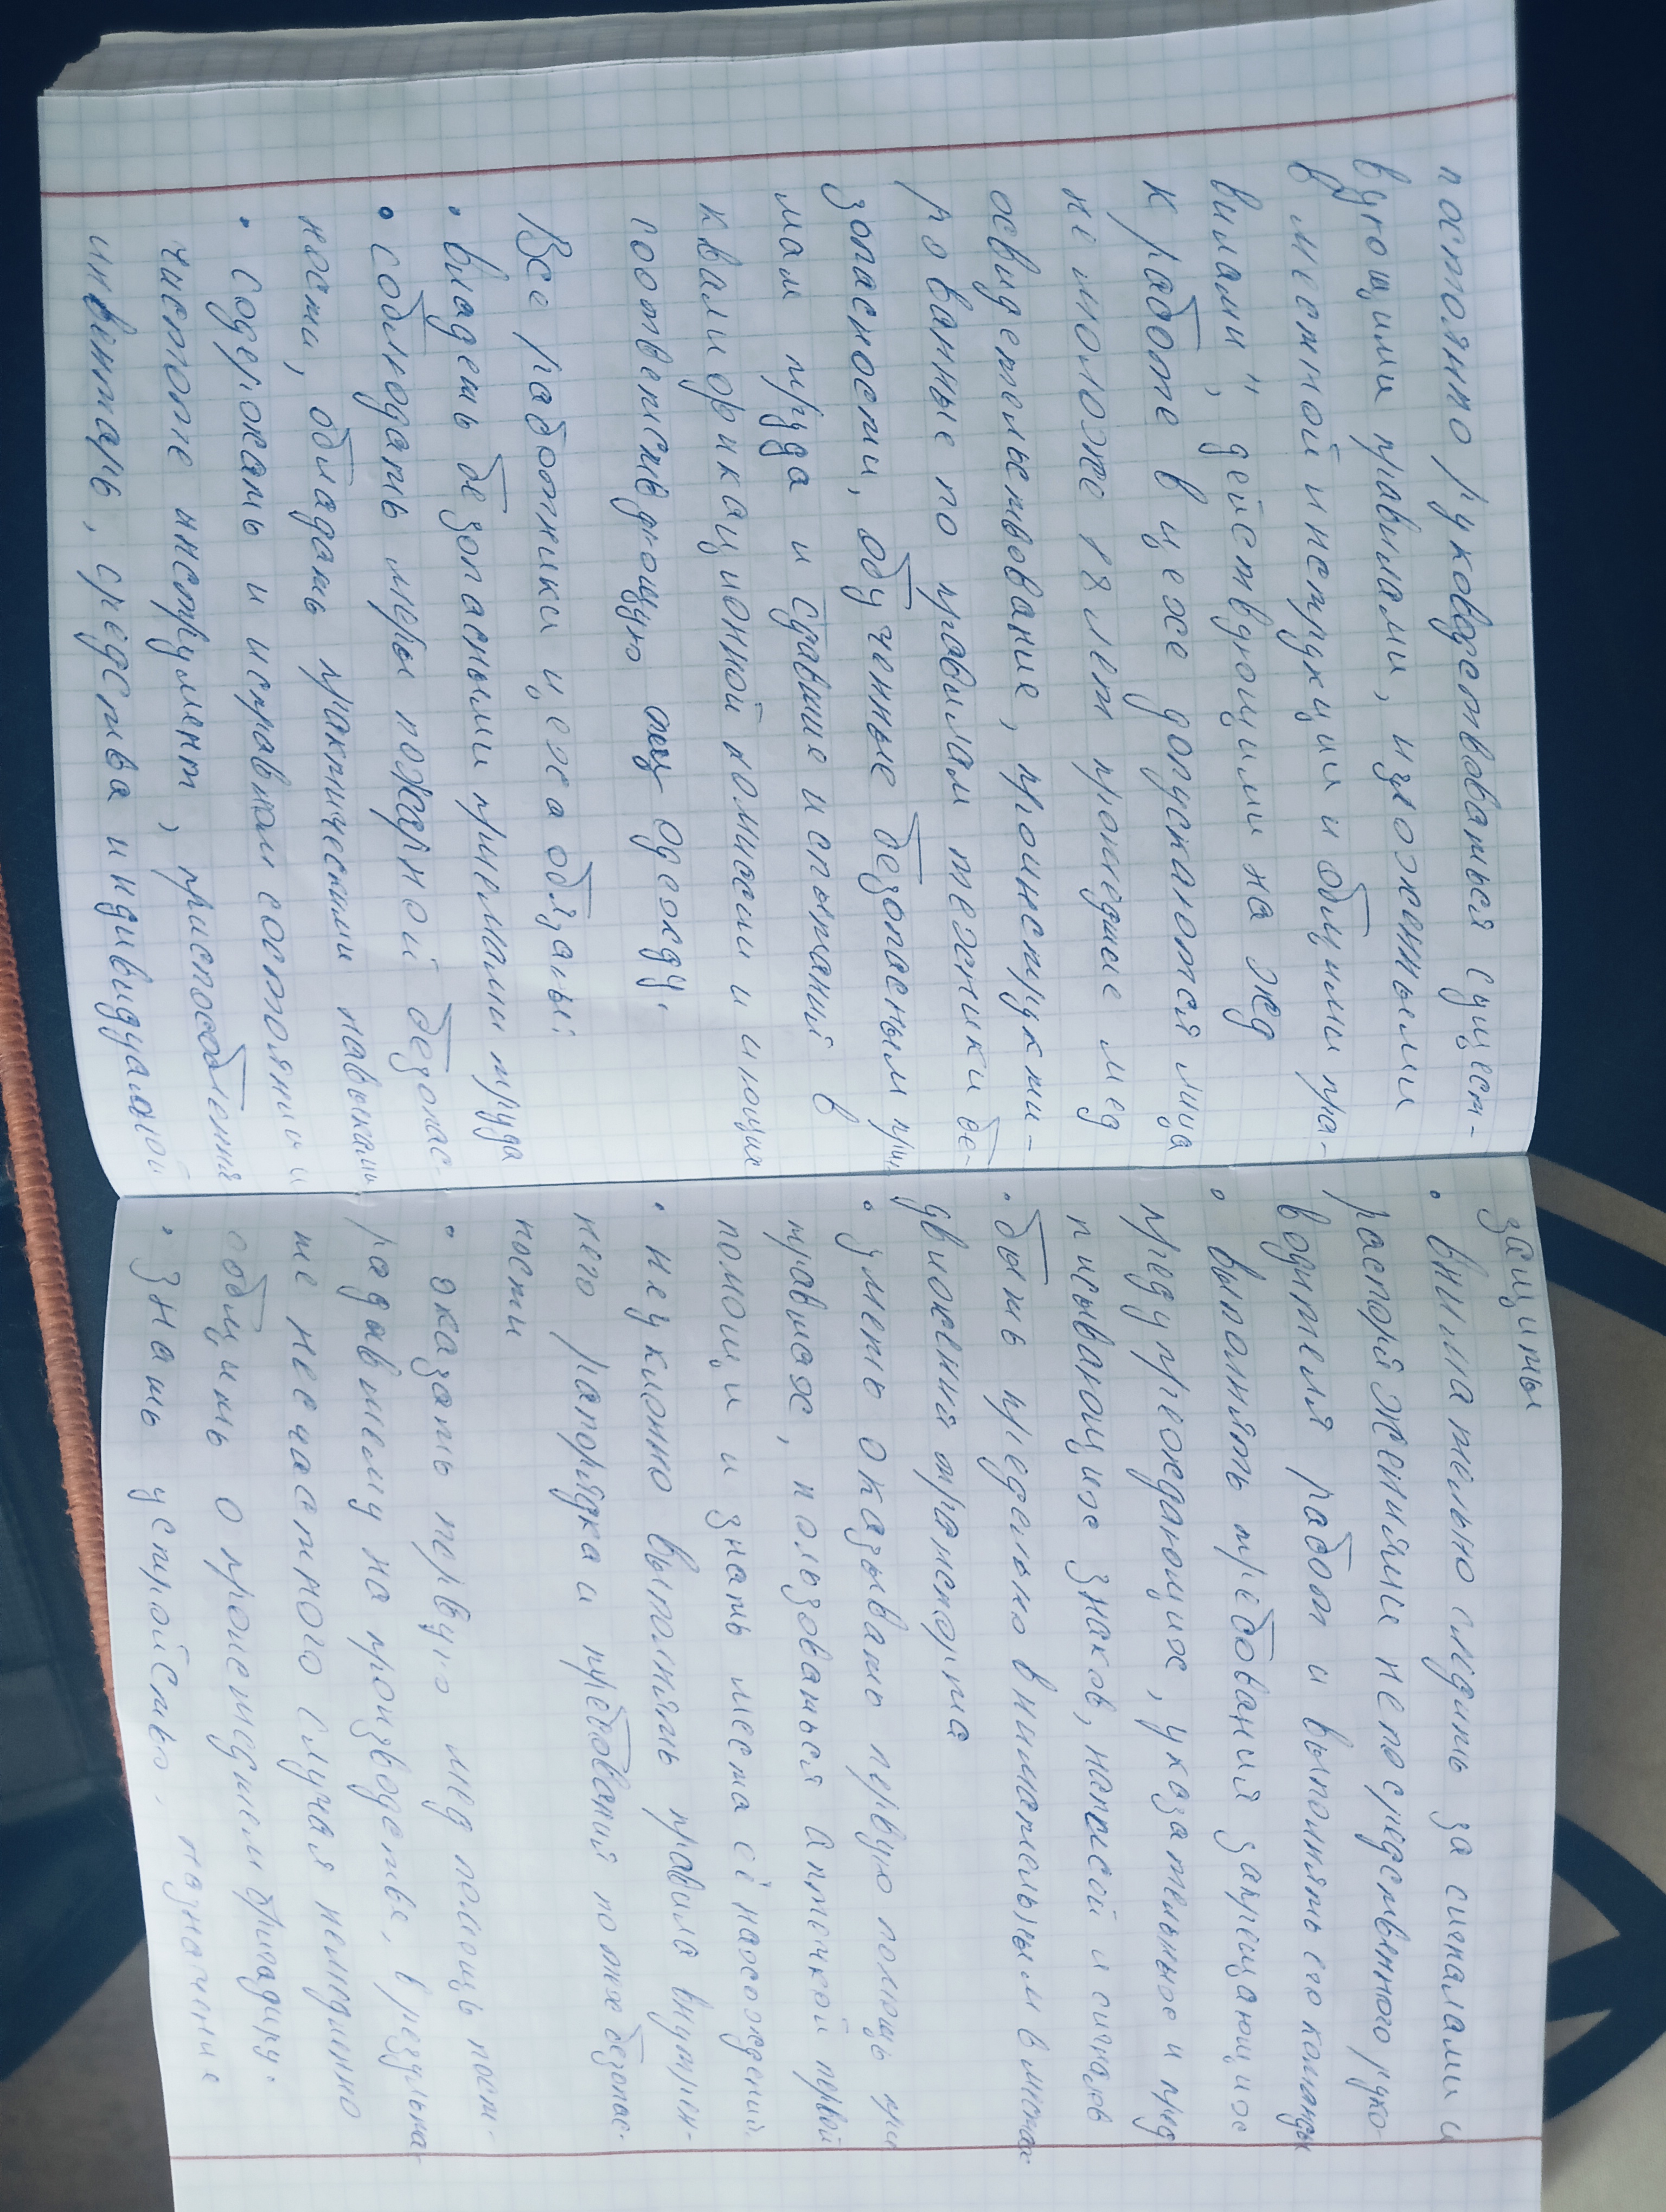 постоянно руководствоваться сущест-
вующими правилами, изложенными
в местной инструкции и общими пра-
вилами", действующими на жд
к работе в цехе допускаются лица
не моложе 18 лет прошедшие мед
освидетельствование, проинструкти-
рованные по правилам техники бе-
зопасности, обученные безопасным при
мам труда и сдавшие испытаний в
квалификационной комиссии и имющих
соответствующую одежду.
Все работники цеха обязаны:
• владеть безопасными приемами труда
• соблюдать меры пожарной безопас
ности, обладать практическими навыками
• содержать и исправном состоянии и
чистоте инструмент, приспособления
инвентарь, средства индивидуалой
защиты
• внимательно следить за сигналами и
распоряжениями непосредственного руко-
водителя работ и выполнять его команды
• выполнять требований запрещающих
предупреждающих, указательных и пред
писывающих знаков, написей и сигналов
• быть предельно внимательным в местах
движения транспорта
• уметь оказывать первую помощь при
травмах, пользоваться аптечкой первой
помощи и знать места её нахождений
• неуклонно выполнять правила внутрен-
него рапорядка и требования пожж безопас-
ности
• оказать первую мед помощь пост-
радавшему на производстве, в результа
те несчастного случая немедлинно
общить о происшедшем бригадиру.
• Знать устройство, назначение